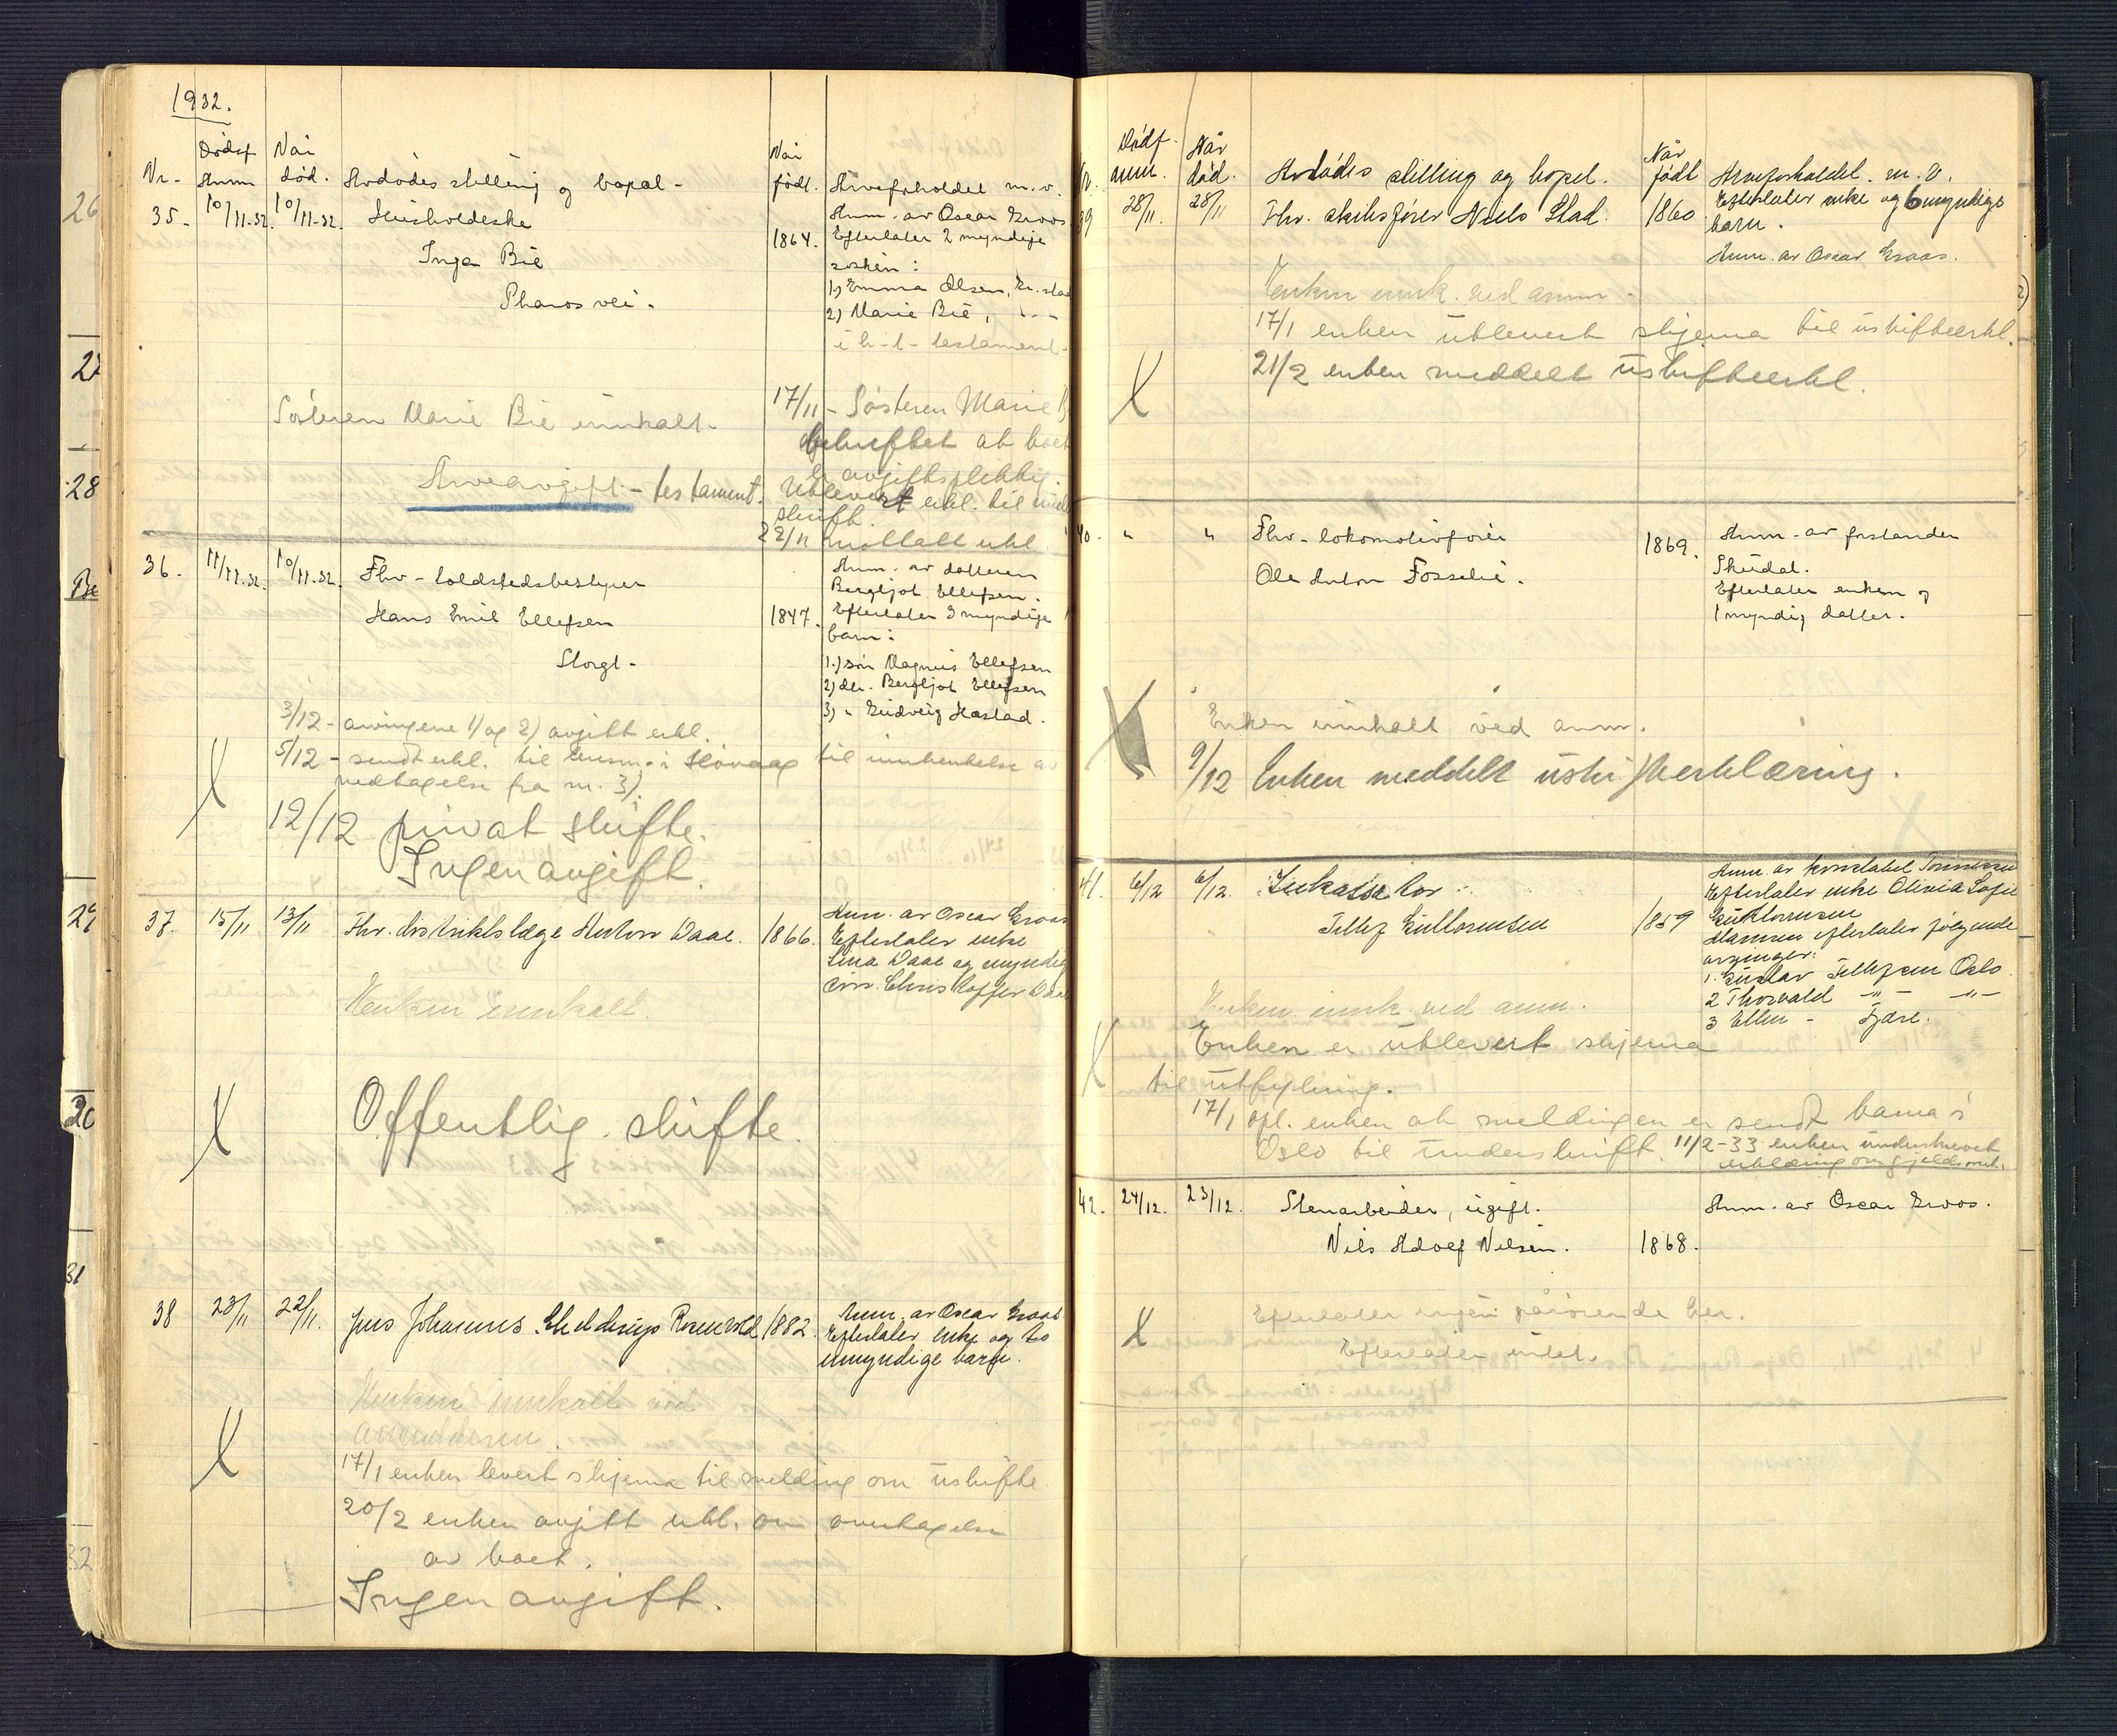 1932.
Nr. Dødsf. Anm. Når død. Avdødes stilling og bopel. Når født. Arveforholdet m. v.
35. 10/11-32. 10/11-32. Husholderske
Inga Bie
Pharos vei.
1864.
Anm. av Oscar Groos
Efterlater 2 myndige
søsken:
1) Emma Olsen,
2) Marie Bie,
i h-t- testament.
Søsteren Marie Bie innkalt.
17/11 - Søsteren Marie
at boet
er avgiftspliktig.
Arveavgift - testament.
Utlevert erkl. til
skrift.
22/11 mottatt erkl.
36. 11/11-32. 10/11-32. Fhv. toldstedsbestyrer
Hans Emil Ellefsen
Storgt.
1847.
Anm. av datteren
Bergljot Ellefsen.
Efterlater 3 myndige
barn:
1.) søn Magnus Ellefsen
2) dtr. Bergljot Ellefsen
3) " Gudveig Hastad.
3/12 - arvingene 1) og 2) avgitt erkl.
5/12 - sendt erkl. til lensm. i til innhentelse av
vedtagelse fra nr. 3).
12/12 privat skifte.
Ingen avgift.
37. 15/11 13/11 Fhv. distriktslæge Anton Daae. 1866.
Anm. av Oscar Groos
Efterlater enke
Lina Daae og myndig
søn Christoffer Daae
Henken innkalt.
Offentlig skifte.
38 23/11 22/11. Jens Johannes 1882.
Anm. av Oscar Groos
Efterlater enke og to
umyndige barn.
Henken innkalt ved
anmeldelsen.
17/1 enken levert skjema til melding om uskifte
20/2 enken avgitt erkl. om overtagelse
av boet.
Ingen avgift.
Nr. Dødsf. anm. Når død. Avdødes stilling og bopel. Når født Arveforholdet. m. v.
39 28/11. 28/11 Fhv. skibsfører Niels Stad. 1860
Efterlater enke og 6 myndige
barn.
Anm. av Oscar Groos.
Henken innk. ved anm.
17/1 enken utlevert skjema til uskifteerkl.
21/2 enken meddelt uskifteerkl.
40. " " Fhv. lokomotivfører
Ole Anton Fosselie.
1869.
Anm. av forstander
Skeidal.
Efterlater enken og
1 myndig datter.
Enken innkalt ved anm.
9/12 Enken meddelt uskifteerklæring.
41. 6/12 6/12. Inkassator
Tellef Guttormsen
1859
Anm. av konstabel Tønnessen
Efterlater enke Olivia Sofie
Guttormsen
Mannen efterlater følgende
arvinger:
1. Gustav Tellefsen Oslo
2 Thorvald -"- -"-
3 Ellen - Fjære.
Henken innk. ved anm.
Enken er utlevert skjema
til utfylning.
17/1 opl. enken at meldingen er sendt barna i
Oslo til underskrift. 11/2-33 enken underskrevet
erklæring om gjeldsovert.
42. 24/12. 23/12. Stenarbeider, ugift.
Nils Adolf Nilsen.
1868.
Anm. av Oscar Groos.
Efterlater ingen pårørende her.
Efterlater intet.
26
27
28
29
30
31
32